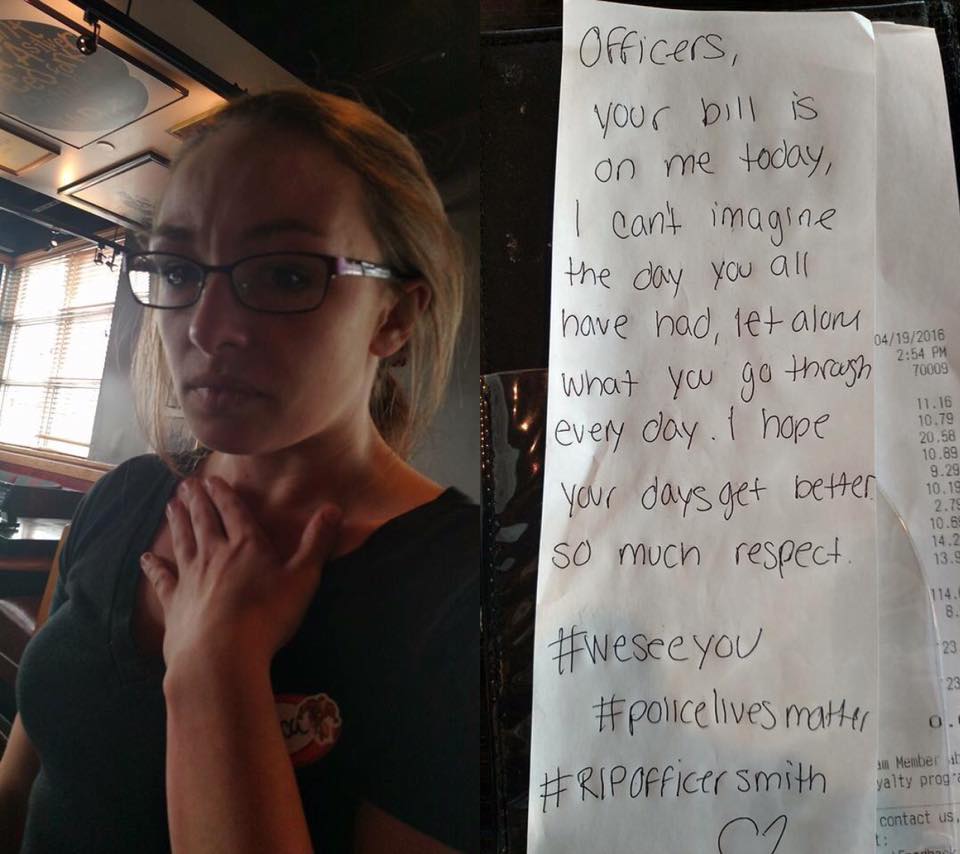 Officers,
your bill is
on me today,
I can't imagine
the day you all
have had, let alone
what you go through
every day. I hope
your days get better.
so much respect.
#weseeyou
#policelivesmatter
#RIPOfficersmith
04/19/2016
2:54 PM
70009
11.16
10.79
20.58
10.89
9.29
10.19
2.79
10.6
14.2
13.9
114.
8.
23
23
0.
am Member
yalty progra
contact us,
t: